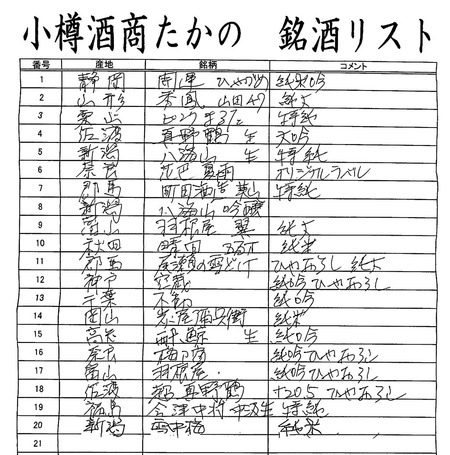 小樽酒商たかの 銘酒リスト
番号 産地 銘柄 コメント
1 静岡 開運 ひやづめ 純米吟
2 山形 秀鳳 山田47 純大
3 富山 特純
4 佐渡 真野鶴 生 大吟
5 新潟 八海山 生 特純
6 奈良 花巴 夏雨 オリジナルラベル
7 群馬 町田酒造 特純
8 新潟 八海山 吟醸
9 富山 羽根屋 翼 純大
10 秋田 晴田 純米
11 群馬 尾瀬の雪どけ ひやおろし 純大
12 神戸 空蔵 純吟ひやおろし
13 千葉 不動 純吟
14 岡山 純米
15 高知 酔鯨 生 純吟
16 奈良 梅乃宿 純吟ひやおろし
17 富山 羽根屋 純吟ひやおろし
18 佐渡 真野鶴 ひやおろし
19 福島 会津中将 特純
20 新潟 雪中梅 純米
21